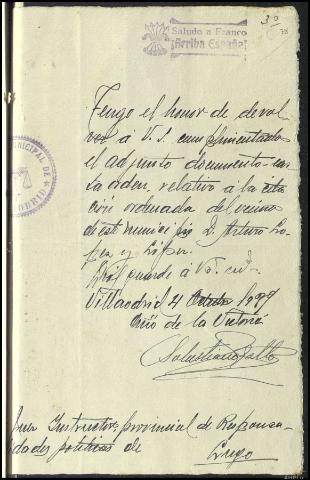 Saludo a Franco
¡Arriba España!
Tengo el honor de devol-
ver á V. S. cumplimentado
el adjunto documento
ta orden, relativo á la cita
ción ordenada del vecino
de este municipio D. Arturo Lo-
pez y López.
Dios guarde á V.
Villaodrid 4 Octubre 1939
Año de la Victoria
Juez Instructor provincial de Responsa-
lidades políticas de
Lugo